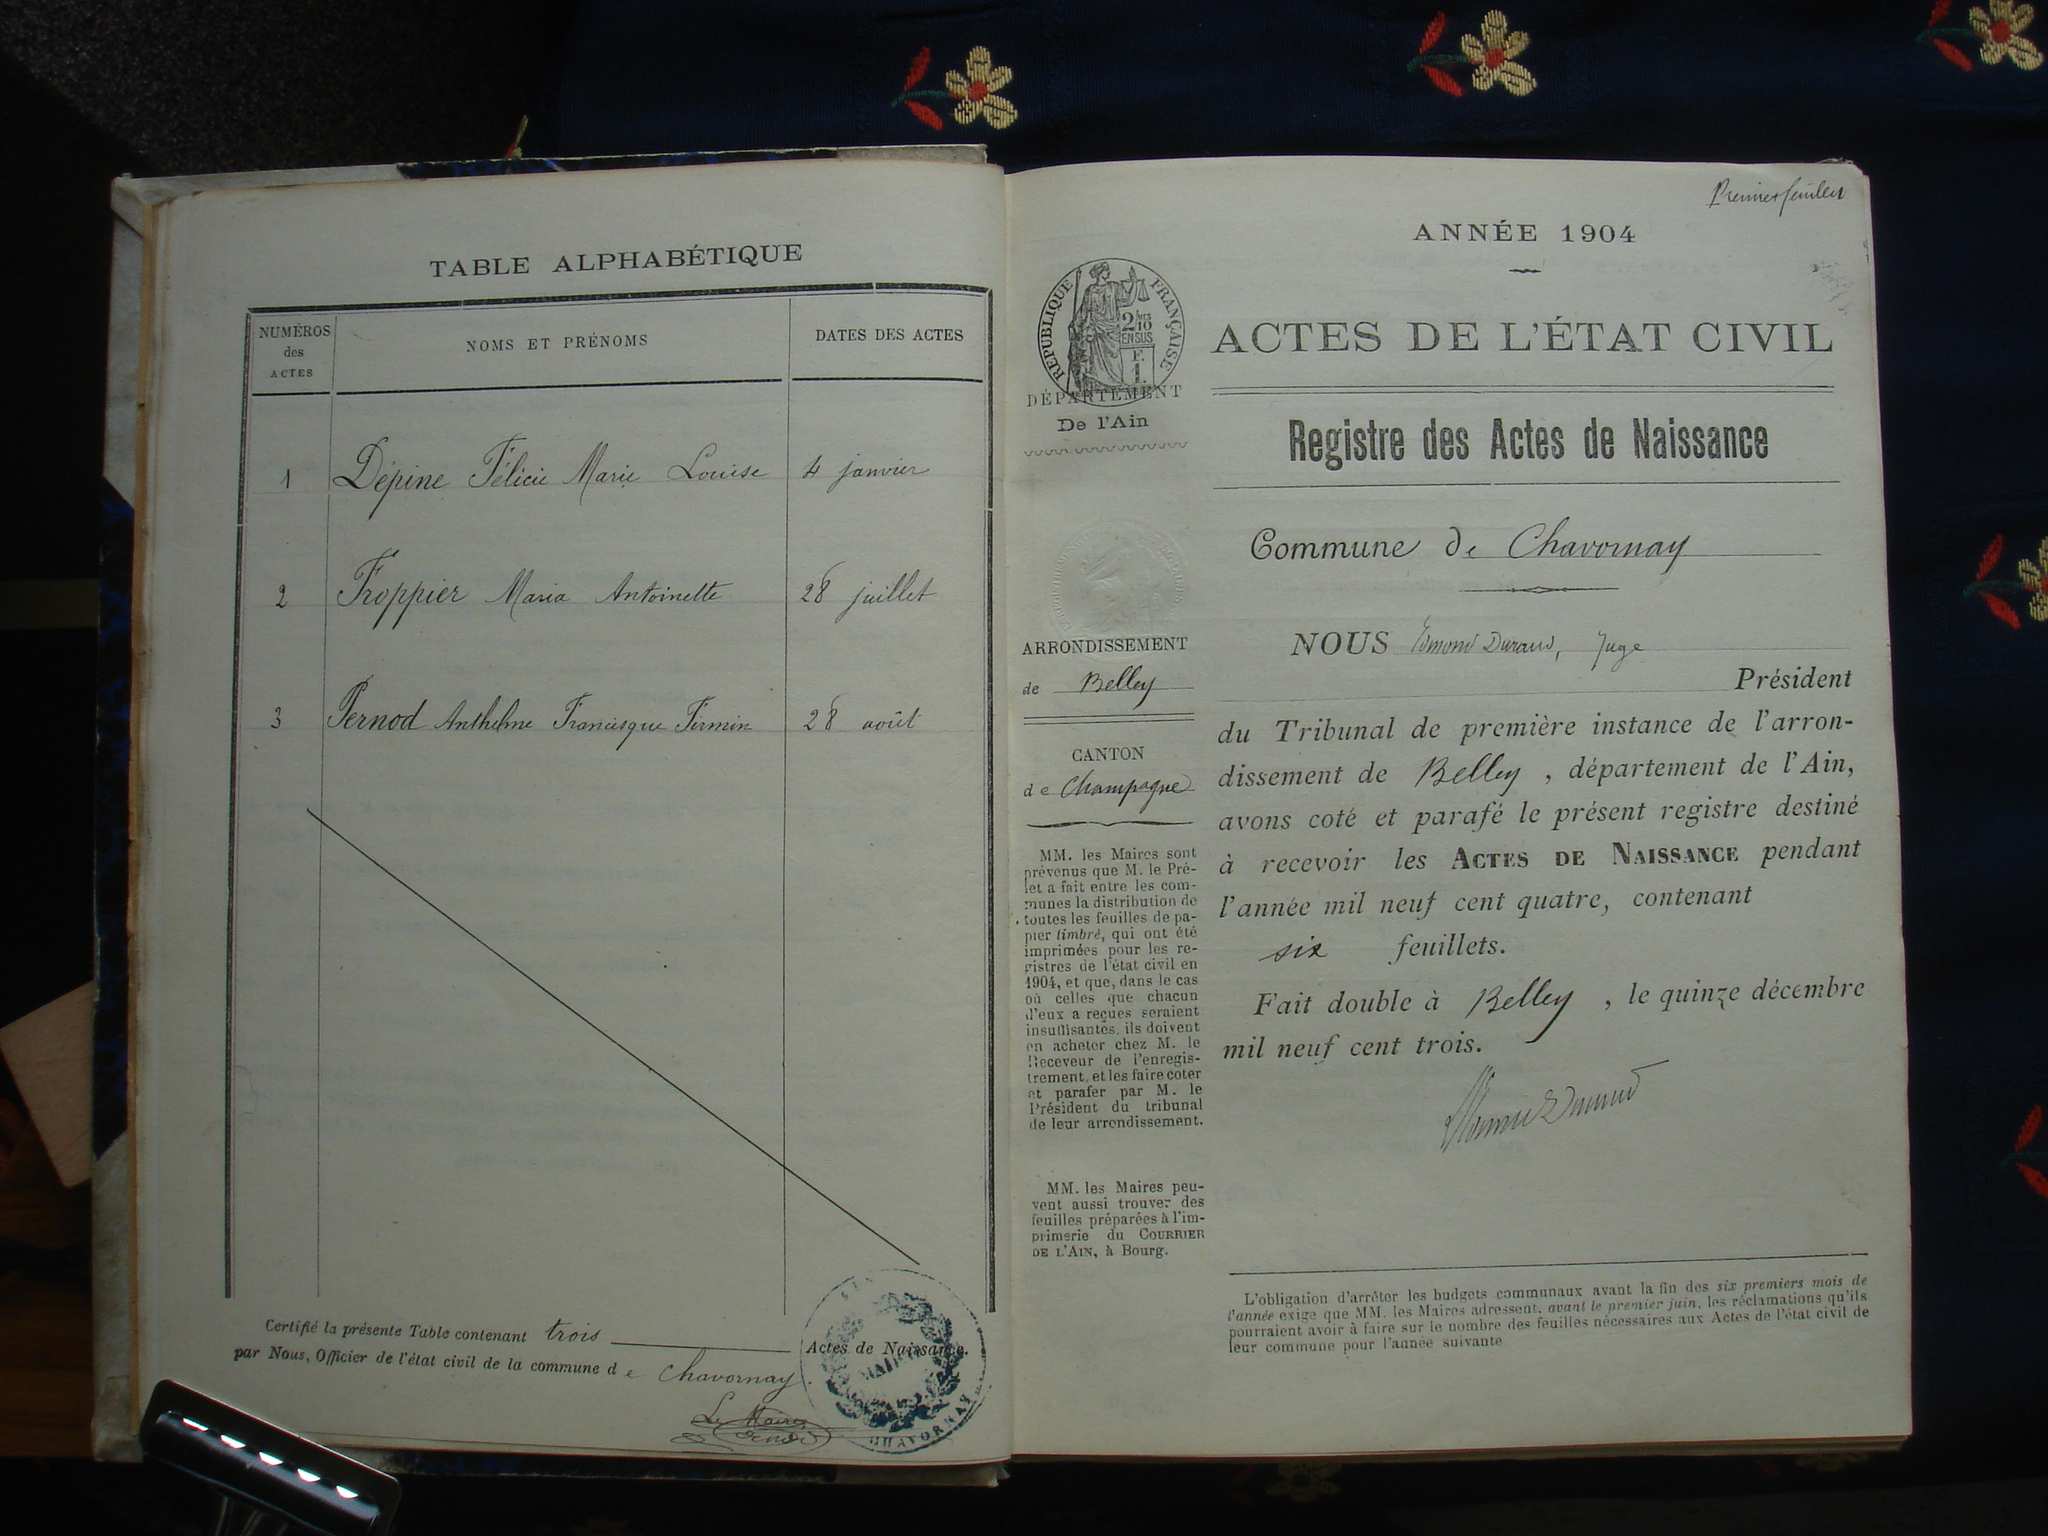 TABLE ALPHABÉTIQUE
NUMÉROS
des
ACTES
NOMS ET PRÉNOMS
DATES DES ACTES
1 Dépine Félicie Marie Louise 4 janvier
2 Froppier Maria Antoinette 28 juillet
3 Pernod Anthelme Francisque Firmin 28 août
Certifié la présente Table contenant trois Actes de Naissance.
par Nous, Officier de l'état civil de la commune de Chavornay
Le Maire
MAIRIE
CHAVORNAY
Premier feuillet
ANNÉE 1904
RÉPUBLIQUE FRANÇAISE
2/10
EN SUS
F.
1.
DÉPARTEMENT
De l'Ain
ARRONDISSEMENT
de Belley
CANTON
de Champagne
MM. les Maires sont
prévenus que M. le Pré-
fet a fait entre les com-
munes la distribution de
toutes les feuilles de pa-
pier timbré, qui ont été
imprimées pour les re-
gistres de l'état civil en
1904, et que, dans le cas
où celles que chacun
d'eux a reçues seraient
insuffisantes, ils doivent
en acheter chez M. le
Receveur de l'enregis-
trement, et les faire coter
et parafer par M. le
Président du tribunal
de leur arrondissement.
MM. les Maires peu-
vent aussi trouver des
feuilles préparées à l'im-
primerie du COURRIER
DE L'AIN, à Bourg.
ACTES DE L'ÉTAT CIVIL
Registre des Actes de Naissance
Commune de Chavornay
NOUS Edmond Durand, Juge
Président
du Tribunal de première instance de l'arron-
dissement de Belley, département de l'Ain,
avons coté et parafé le présent registre destiné
à recevoir les ACTES DE NAISSANCE pendant
l'année mil neuf cent quatre, contenant
six feuillets.
Fait double à Belley, le quinze décembre
mil neuf cent trois.
L'obligation d'arrêter les budgets communaux avant la fin des six premiers mois de
l'année exige que MM. les Maires adressent, avant le premier juin, les réclamations qu'ils
pourraient avoir à faire sur le nombre des feuilles nécessaires aux Actes de l'état civil de
leur commune pour l'année suivante